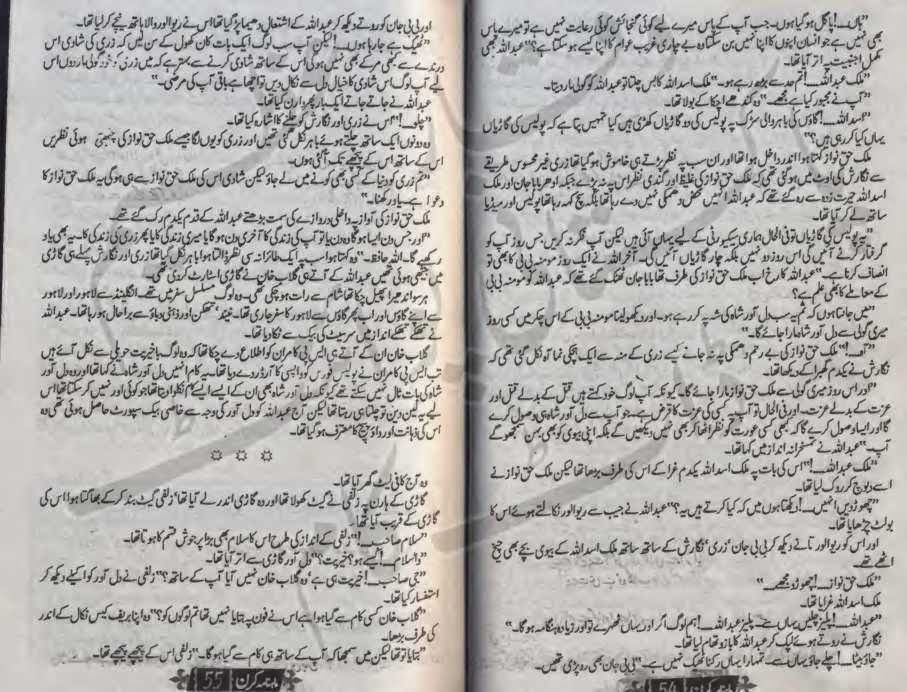 "ہاں...! پاگل ہو گیا ہوں۔ جب آپ کے پاس میرے لیے کوئی گنجائش کوئی رعایت نہیں ہے تو میرے پاس
بھی نہیں ہے جو انسان اپنوں کا اپنا نہیں بن سکتا وہ بے چاری غریب عوام کا اپنا کیسے ہو سکتا ہے؟" عبداللہ بھی
مکمل اجنبیت پہ اتر آیا تھا۔
"ملک عبداللہ...! تم حد سے بڑھ رہے ہو۔" ملک اسداللہ کا بس چلتا تو عبداللہ کو گولی مار دیتا۔
"آپ نے مجبور کیا ہے مجھے۔" وہ کندھے اچکا کے بولا تھا۔
"اسداللہ...! گاؤں کی باہر والی سڑک پہ پولیس کی دو گاڑیاں کھڑی ہیں کیا تمہیں پتا ہے کہ پولیس کی گاڑیاں
یہاں کیا کر رہی ہیں؟"
ملک حق نواز کہتا ہوا اندر داخل ہوا تھا اور ان سب پہ نظر پڑتے ہی خاموش ہو گیا تھا زری غیر محسوس طریقے
سے نگارش کی اوٹ میں ہو گئی تھی کہ ملک حق نواز کی غلیظ اور گندی نظر اس پہ نہ پڑے جبکہ ادھر بابا جان اور ملک
اسداللہ حیرت زدہ سے رہ گئے تھے کہ عبداللہ انہیں محض دھمکی نہیں دے رہا تھا بلکہ سچ کہہ رہا تھا پولیس اور میڈیا
ساتھ لے کر آیا تھا۔
"یہ پولیس کی گاڑیاں تو فی الحال ہماری سیکیورٹی کے لیے یہاں آئی ہیں لیکن آپ فکر نہ کریں، جس روز آپ کو
گرفتار کرنے آئیں گی اس روز دو نہیں بلکہ چار گاڑیاں آئیں گی۔ آخر اللہ نے ایک روز مومنہ بی بی کا بھی تو
انصاف کرنا ہے۔" عبداللہ کا رخ اب ملک حق نواز کی طرف تھا بابا جان ٹھٹک گئے تھے کہ عبداللہ کو مومنہ بی بی
کے معاملے کا بھی علم ہے؟
"میں جانتا ہوں کہ تم یہ سب دل آور شاہ کی شہ پہ کر رہے ہو۔ اور دیکھ لینا مومنہ بی بی کے اس چکر میں کسی روز
میری گولی سے دل آور شاہ مارا جائے گا۔"
"آہ...!" ملک حق نواز کی بے رحم دھمکی پہ نہ جانے کیسے زری کے منہ سے ایک ہچکی نما آہ نکل گئی تھی کہ
نگارش نے یکدم گھبرا کے دیکھا تھا۔
"اور اس روز میری گولی سے ملک حق نواز مارا جائے گا۔ کیونکہ آپ لوگ خود کہتے ہیں قتل کے بدلے قتل اور
عزت کے بدلے عزت۔ اور فی الحال تو آپ پہ کسی کی عزت کا قرض ہے۔ جو آپ سے دل آور شاہ ہی وصول کرے
گا اور ایسا وصول کرے گا کہ کبھی کسی عورت کو نظر اٹھا کر بھی نہیں دیکھیں گے بلکہ اپنی بیوی کو بھی بہن سمجھو گے
آپ۔" عبداللہ نے تمسخرانہ انداز میں کہا تھا۔
"ملک عبداللہ...!" اس کی بات پہ ملک اسداللہ یکدم غرا کے اس کی طرف بڑھا تھا لیکن ملک حق نواز نے
اسے دبوچ کر روک لیا تھا۔
"چھوڑ دیں انہیں...! دیکھتا ہوں میں کہ کیا کرتے ہیں یہ؟" عبداللہ نے جیب سے ریوالور نکالتے ہوئے اس کا
بولٹ چڑھایا تھا۔
اور اس کو ریوالور تانے دیکھ کر بی بی جان، زری، نگارش کے ساتھ ساتھ ملک اسداللہ کے بیوی بچے بھی چیخ
اٹھے تھے
"ملک حق نواز...! چھوڑو مجھے۔"
ملک اسداللہ غرایا تھا۔
"عبداللہ...! پلیز چلیں یہاں سے۔ پلیز عبداللہ...! ہم لوگ اگر اور یہاں ٹھہرے تو اور زیادہ ہنگامہ ہو گا۔"
نگارش نے روتے ہوئے لپک کر عبداللہ کا بازو تھام لیا تھا۔
"جاؤ بیٹا...! چلے جاؤ یہاں سے۔ تمہارا یہاں رکنا ٹھیک نہیں ہے۔" بی بی جان بھی رو پڑی تھیں۔
ماہنامہ کرن 54
اور بی بی جان کو روتے دیکھ کر عبداللہ کے اشتعال دھیما پڑ گیا تھا اس نے ریوالور والا ہاتھ نیچے کر لیا تھا۔
"ٹھیک ہے جا رہا ہوں...! لیکن آپ سب لوگ ایک بات کان کھول کے سن لیں کہ زری کی شادی اس
درندے سے کبھی مرکے بھی نہیں ہو گی اس کے ساتھ شادی کرنے سے بہتر ہے کہ میں زری کو خود گولی مار دوں اس
لیے آپ لوگ اس شادی کا خیال دل سے نکال دیں تو اچھا ہے باقی آپ کی مرضی۔"
عبداللہ نے جاتے جاتے ایک بار پھر وارن کیا تھا۔
"چلو...!" اس نے زری اور نگارش کو چلنے کا اشارہ کیا تھا۔
وہ دونوں ایک ساتھ چلتے ہوئے باہر نکل گئی تھیں اور زری کو یوں لگا جیسے ملک حق نواز کی چبھتی ہوئی نظریں
اس کے ساتھ اس کے پیچھے تک آئی ہوں۔
"تم زری کو دنیا کے کسی بھی کونے میں لے جاؤ لیکن شادی اس کی ملک حق نواز سے ہی ہو گی یہ ملک حق نواز کا
دعوا ہے۔ یاد رکھنا۔"
ملک حق نواز کی آواز پہ داخلی دروازے کی سمت بڑھتے عبداللہ کے قدم یکدم رک گئے تھے۔
"اور جس دن ایسا ہو گا وہ دن یا تو آپ کی زندگی کا آخری دن ہو گا یا میری زندگی کا یا پھر زری کی زندگی کا۔ یہ بھی یاد
رکھیے گا۔ اللہ حافظ۔" وہ کہتا ہوا سب پہ ایک طائرانہ سی نظر ڈالتا باہر نکل گیا تھا زری اور نگارش پہلے ہی گاڑی
میں بیٹھی ہوئی تھیں عبداللہ کے آتے ہی گلاب خان نے گاڑی اسٹارٹ کر دی تھی۔
ہر سو اندھیرا پھیل چکا تھا شام سے رات ہو چکی تھی۔ وہ لوگ مسلسل سفر میں تھے۔ انگلینڈ سے لاہور اور لاہور
سے اپنے گاؤں اور اب پھر گاؤں سے لاہور کا سفر جاری تھا۔ نیند، تھکن اور ذہنی دباؤ سے برا حال ہو رہا تھا۔ عبداللہ
نے تھکے تھکے انداز میں سر سیٹ کی بیک سے ٹکا دیا تھا۔
گلاب خان ان کے آتے ہی ایس پی کامران کو اطلاع دے چکا تھا کہ وہ لوگ با خیریت حویلی سے نکل آئے ہیں
تب ایس پی کامران نے پولیس فورس کو واپسی کا آرڈر دے دیا تھا۔ یہ کام انہیں دل آور شاہ نے کہا تھا اور وہ دل آور
شاہ کی بات ٹال نہیں سکتے تھے کیونکہ دل آور شاہ بھی ان کے ایسے ایسے کام نکلوا دیتا تھا جو کوئی اور نہیں کر سکتا تھا اس
لیے یہ لین دین تو چلتا ہی رہتا تھا لیکن آج عبداللہ کو دل آور کی وجہ سے خاصی بیک سپورٹ حاصل ہوئی تھی وہ
اس کی ذہانت اور داؤ پیچ کا معترف ہو گیا تھا۔
✡ ✡ ✡
وہ آج کافی لیٹ گھر آیا تھا۔
گاڑی کے ہارن پہ زلفی نے گیٹ کھولا تھا اور وہ گاڑی اندر لے آیا تھا، زلفی گیٹ بند کر کے بھاگتا ہوا اس کی
گاڑی کے قریب آیا تھا۔
"سلام صاحب...!" زلفی کے انداز کی طرح اس کا سلام بھی بڑا پر جوش قسم کا ہوتا تھا۔
"وسلام۔ کیسے ہو؟ خیریت؟" دل آور گاڑی سے اتر آیا تھا۔
"جی صاحب...! خیریت ہی ہے، وہ گلاب خان نہیں آیا آپ کے ساتھ؟" زلفی نے دل آور کو اکیلے دیکھ کر
استفسار کیا تھا۔
"گلاب خان کسی کام سے گیا ہوا ہے اس نے فون پہ بتایا نہیں تھا تم لوگوں کو؟" وہ اپنا بریف کیس نکال کے اندر
کی طرف بڑھا۔
"بتایا تو تھا لیکن میں سمجھا کہ آپ کے ساتھ ہی کام سے گیا ہو گا۔" زلفی اس کے پیچھے پیچھے تھا۔
ماہنامہ کرن 55